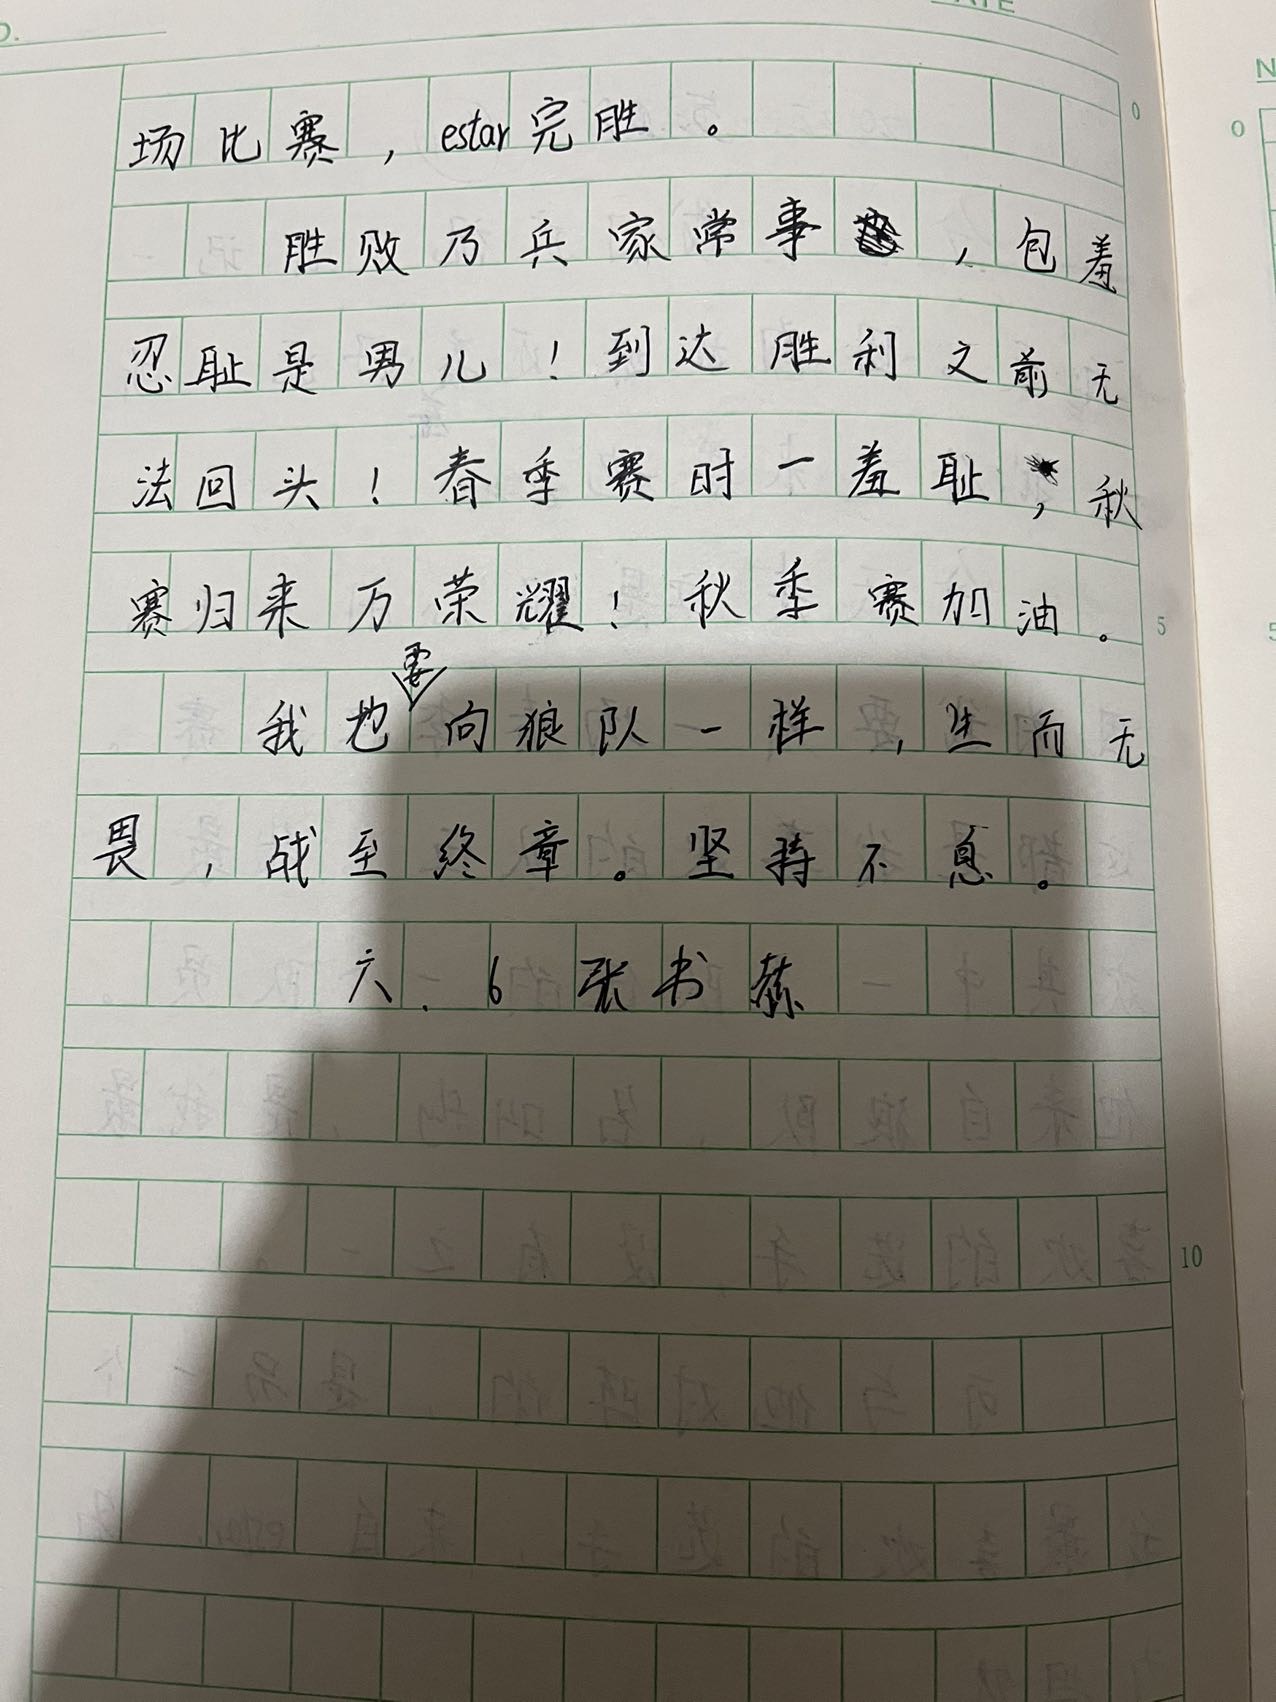 场比赛，estar完胜。
胜败乃兵家常事，包羞
忍耻是男儿！到达胜利之前无
法回头！春季赛时一羞耻，秋
赛归来万荣耀！秋季赛加油。
我也要向狼队一样，生而无
畏，战至终章。坚持不息。
六．6张书
0
5
10